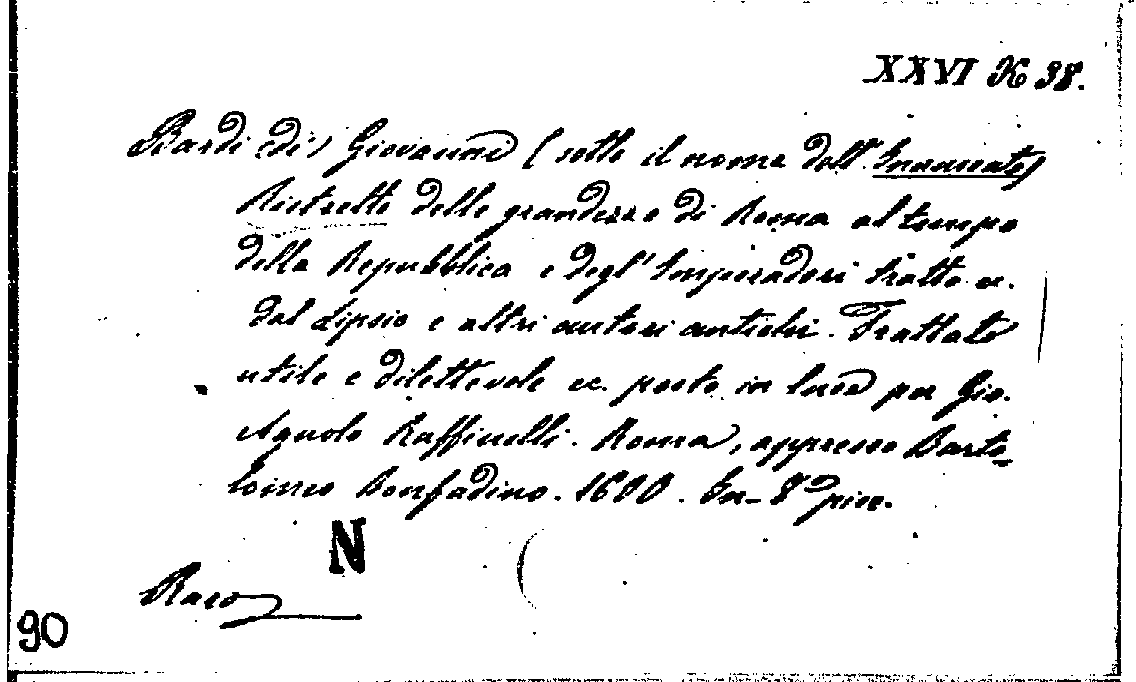 XXVI K 38.
Bardi (di) Giovanni (sotto il nome dell'
Ristretto delle grandezze di Roma al tempo
della Repubblica e degl'Imperadori tratto ec.
dal Lipsio e altri autori antichi. Trattato
utile e dilettevole ec. posto in luce per Gio.
Agnolo Ruffinelli. Roma, appresso Barto-
lomeo Bonfadino. 1600. In-8° picc.
N
Raro
90